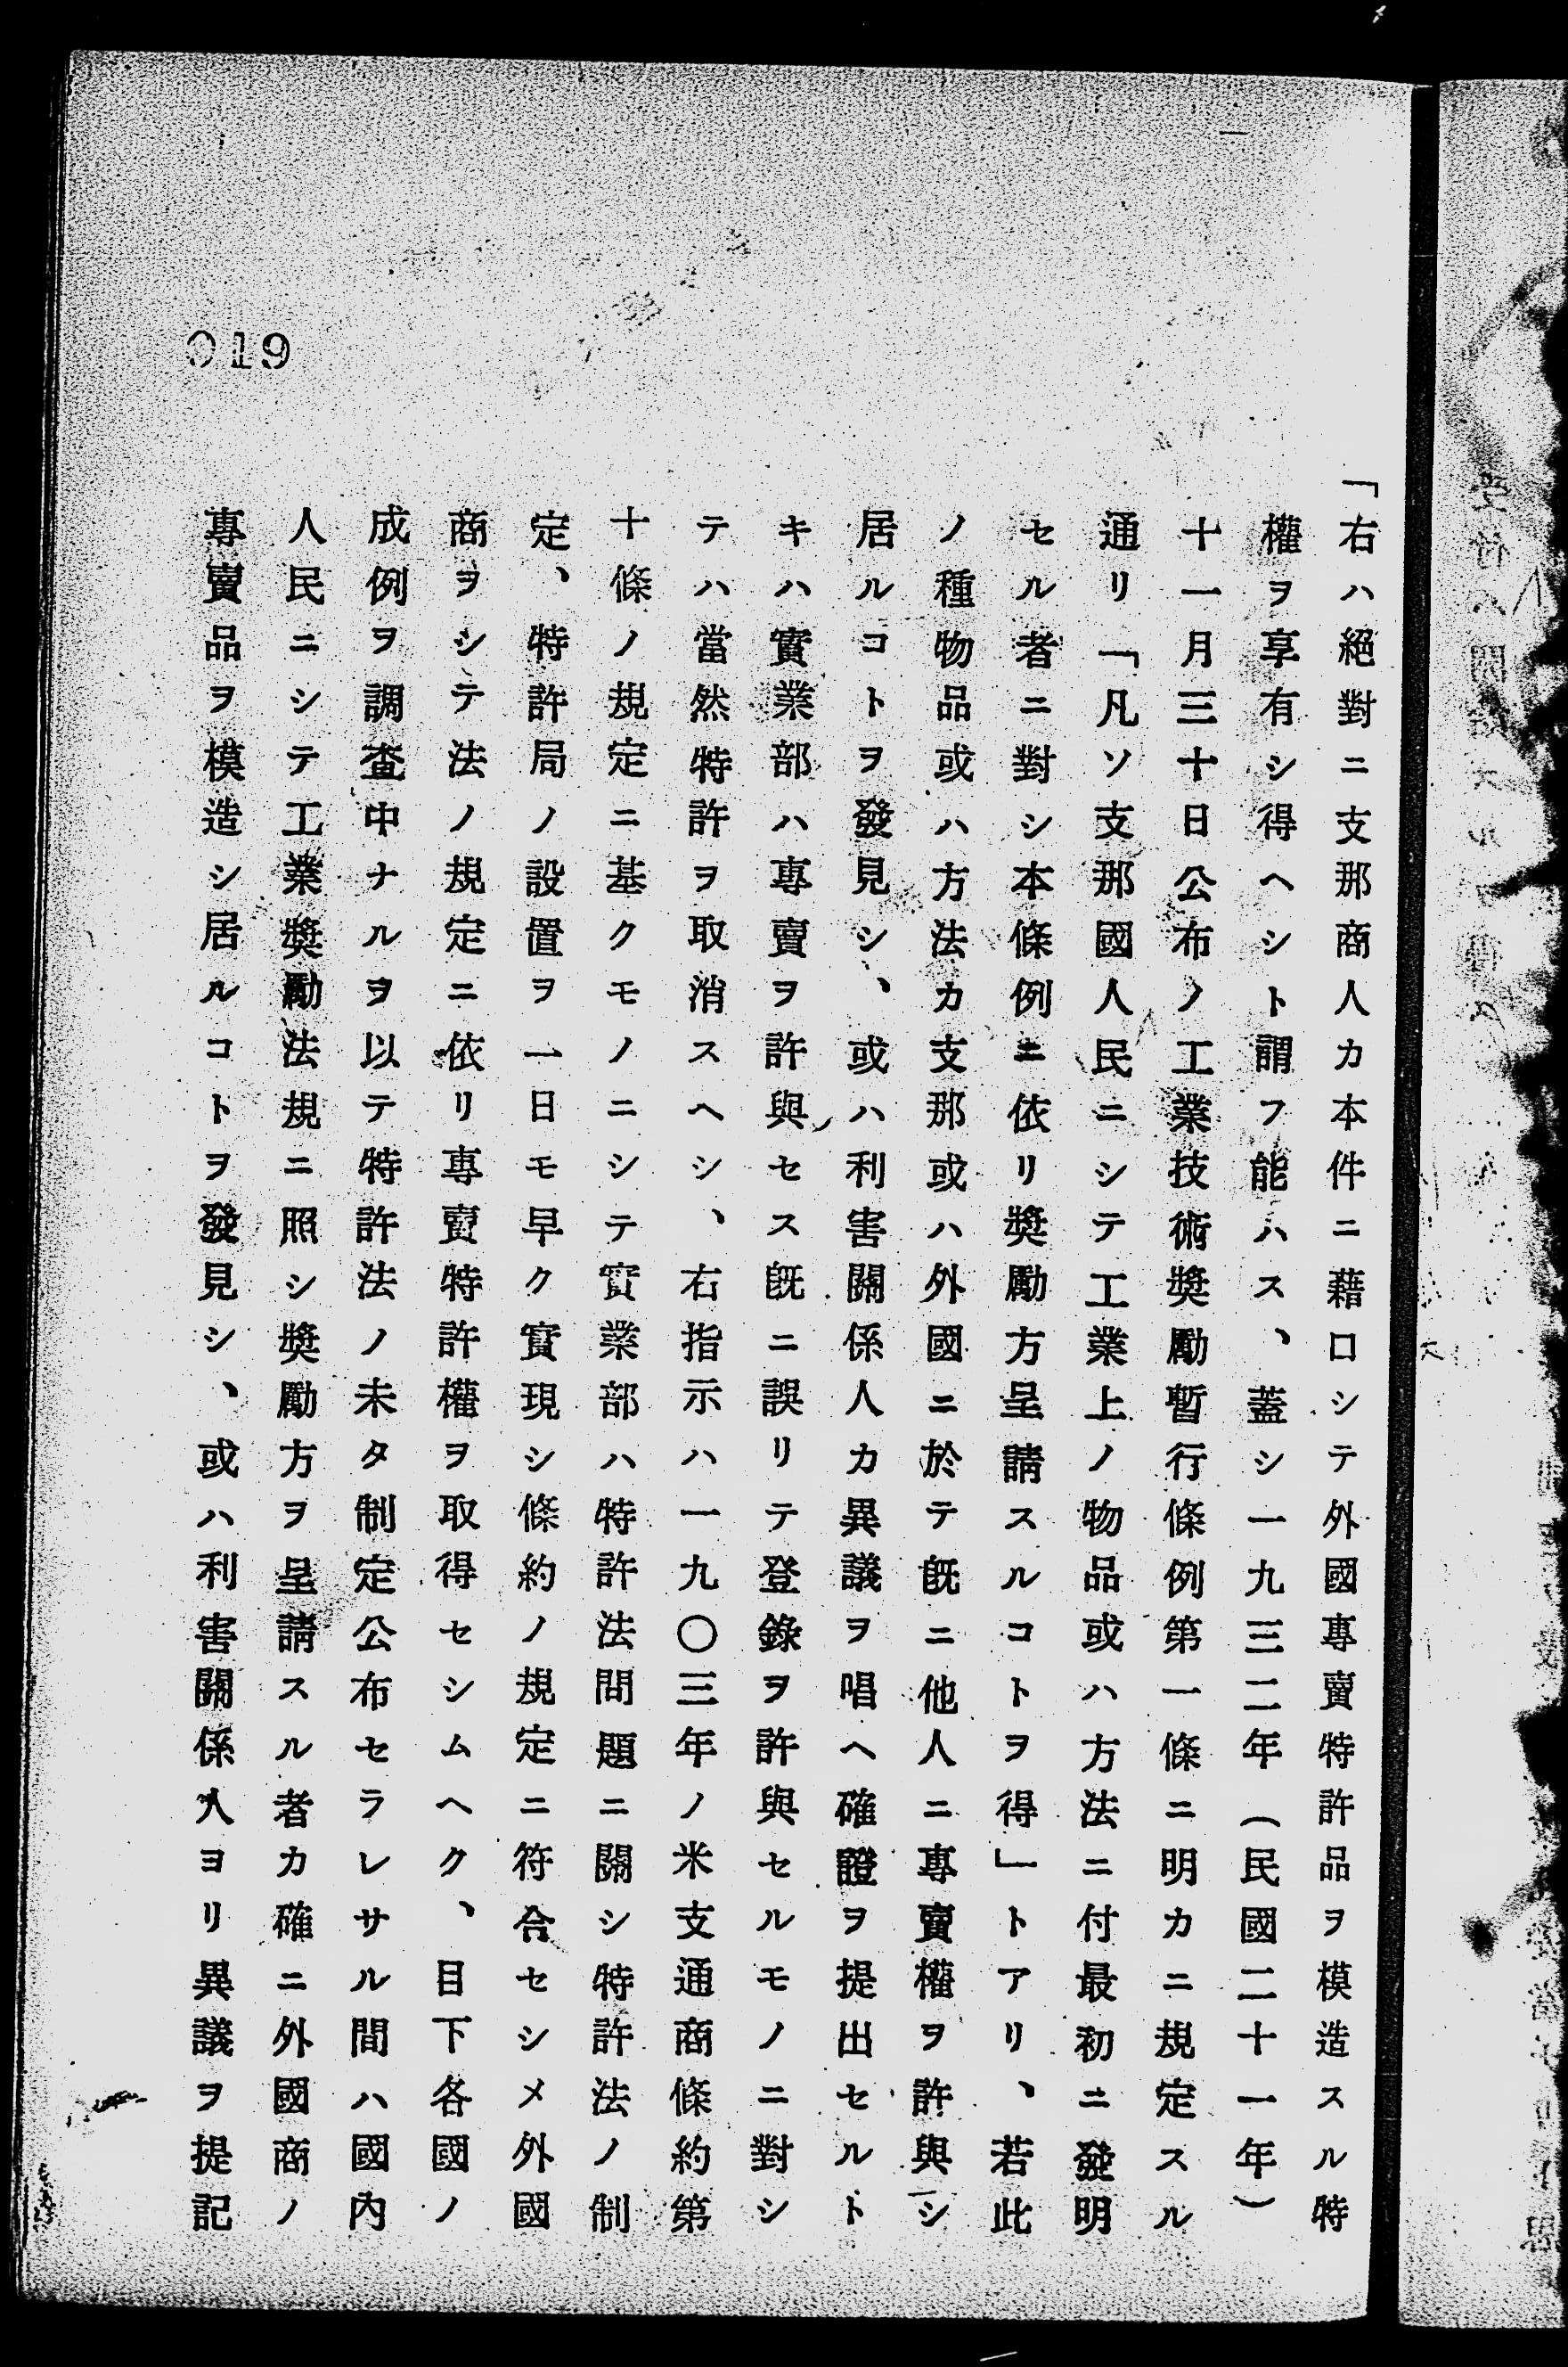 「右ハ絕對ニ支那商人カ本件ニ藉口シテ外國專賣特許品ヲ模造スル特
權ヲ享有シ得ヘシト謂フ能ハス、蓋シ一九三二年（民國二十一年）
十一月三十日公布ノ工業技術奬勵暫行條例第一條ニ明カニ規定スル
通リ「凡ソ支那國人民ニシテ工業上ノ物品或ハ方法ニ付最初ニ發明
セル者ニ對シ本條例ニ依リ奬勵方呈請スルコトヲ得」トアリ、若此
ノ種物品或ハ方法カ支那或ハ外國ニ於テ旣ニ他人ニ專賣權ヲ許與シ
居ルコトヲ發見シ、或ハ利害關係人カ異議ヲ唱ヘ確證ヲ提出セルト
キハ實業部ハ專賣ヲ許與セス旣ニ誤リテ登錄ヲ許與セルモノニ對シ
テハ當然特許ヲ取消スヘシ、右指示ハ一九〇三年ノ米支通商條約第
十條ノ規定ニ基クモノニシテ實業部ハ特許法問題ニ關シ特許法ノ制
定、特許局ノ設置ヲ一日モ早ク實現シ條約ノ規定ニ符合セシメ外國
商ヲシテ法ノ規定ニ依リ專賣特許權ヲ取得セシムヘク、目下各國ノ
成例ヲ調査中ナルヲ以テ特許法ノ未タ制定公布セラレサル間ハ國內
人民ニシテ工業奬勵法規ニ照シ奬勵方ヲ呈請スル者カ確ニ外國商ノ
專賣品ヲ模造シ居ルコトヲ發見シ、或ハ利害關係人ヨリ異議ヲ提記
019